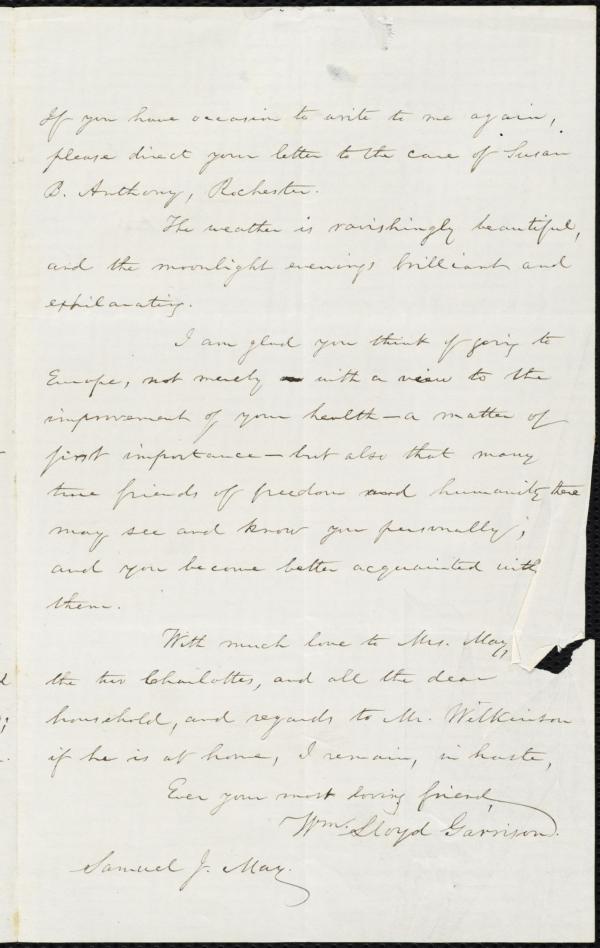 If you have occasion to write to me again,
please direct your letter to the care of Susan
B. Anthony, Rochester.
The weather is ravishingly beautiful,
and the moonlight evenings brilliant and
exhilarating.
I am glad you think of going to
Europe, not merely with a view to the
improvement of your health—a matter of
first importance—but also that many
true friends of freedom and humanity there
may see and know you personally;
and you become better acquainted with
them.
With much love to Mrs. May,
the two Charlottes, and all the dear
household, and regards to Mr. Wilkinson
if he is at home, I remain, in haste,
Ever your most loving friend,
Wm. Lloyd Garrison.
Samuel J. May.